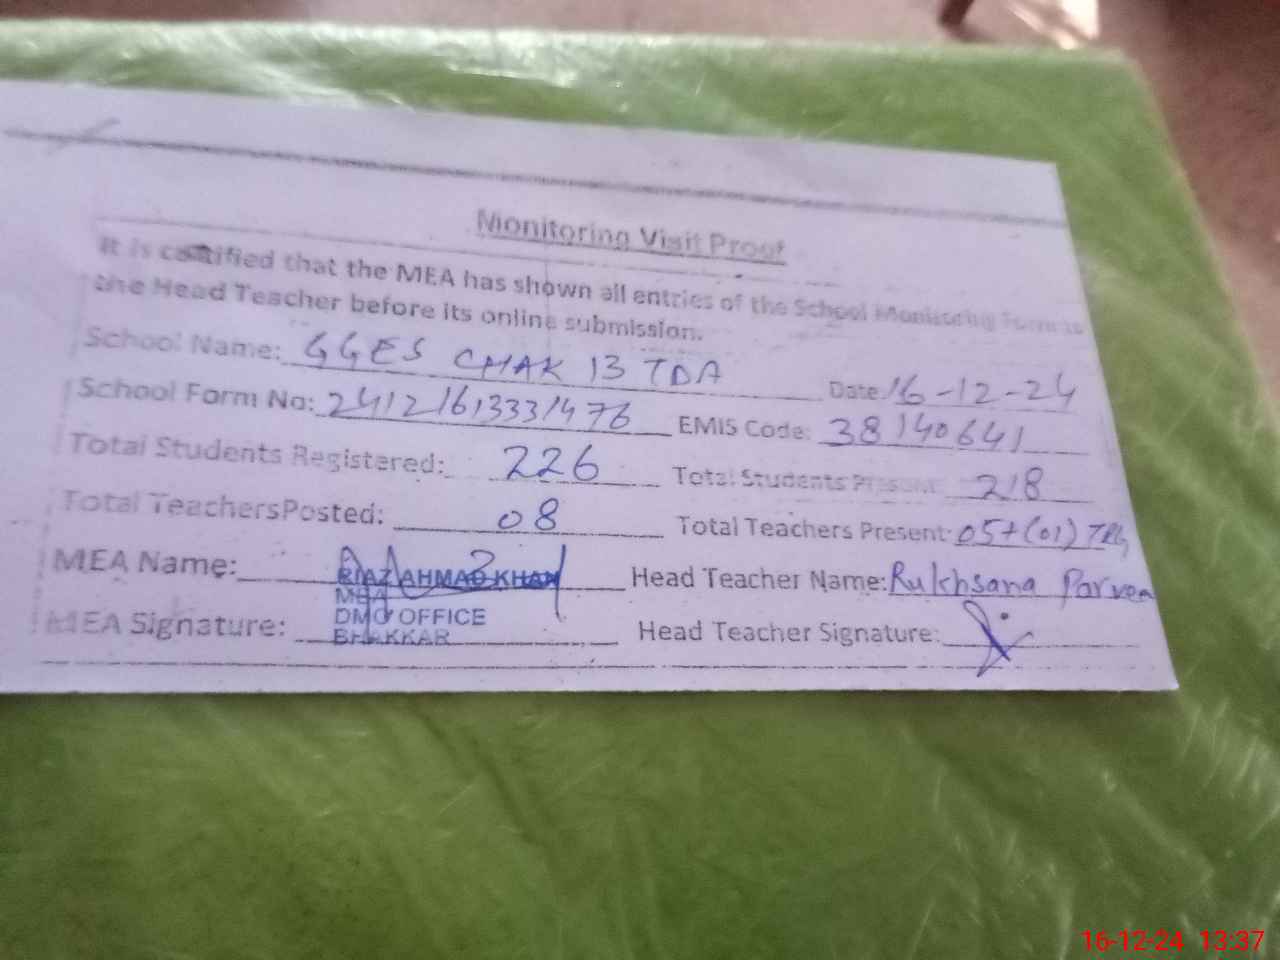 Monitoring Visit Proof
It is certified that the MEA has shown all entries of the School Monitoring Form to
the Head Teacher before its online submission.
School Name: GGES CHAK 13 TDA Date: 16-12-24
School Form No: 24121613331476 EMIS Code: 38140641
Total Students Registered: 226 Total Students Present: 218
Total TeachersPosted: 08 Total Teachers Present: 05+(01) TRG
MEA Name: RIAZ AHMAD KHAN Head Teacher Name: Rukhsana Parveen
MEA
DMO OFFICE
MEA Signature: BHAKKAR Head Teacher Signature:
16-12-24 13:37